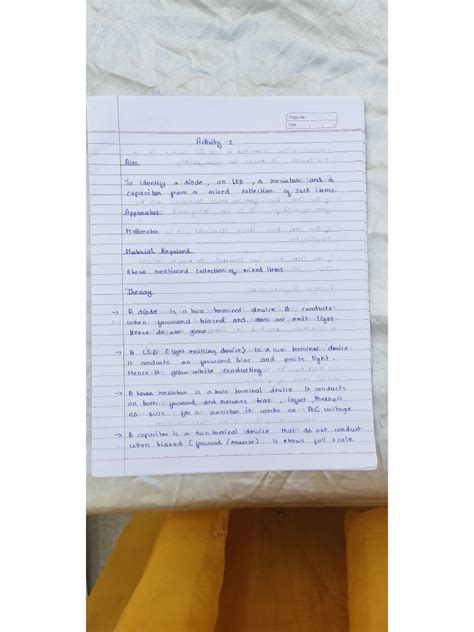 Page No.
Date
Activity - 1
Aim
To identify a diode, an LED, a resistor and a
capacitor from a mixed collection of such items.
Apparatus
Multimeter
Material Required
Above mentioned collection of mixed items
Theory
→ A diode is a two terminal device. It conducts
when forward biased and does not emit light.
Hence do not glow
→ A LED (light emitting device) is a two terminal device.
It conducts on forward bias and emits light.
Hence it glow while conducting.
→ A resistor is a two terminal device. It conducts
on both forward and reverse bias, infact, there is
no bias for a resistor it works on voltage
→ A capacitor is a two terminal device that do not conduct
when biased (forward / reverse). It shows full scale